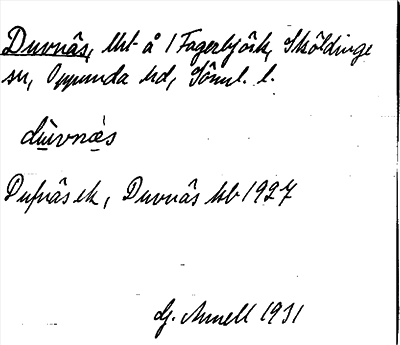 Duvnäs, lht å 1 Fagerbjörk, Sköldinge
sn, Oppunda hd, Söml. l.
dùvnæs
Dufnäs ek, Duvnäs kb 1927
G. Annell 1931